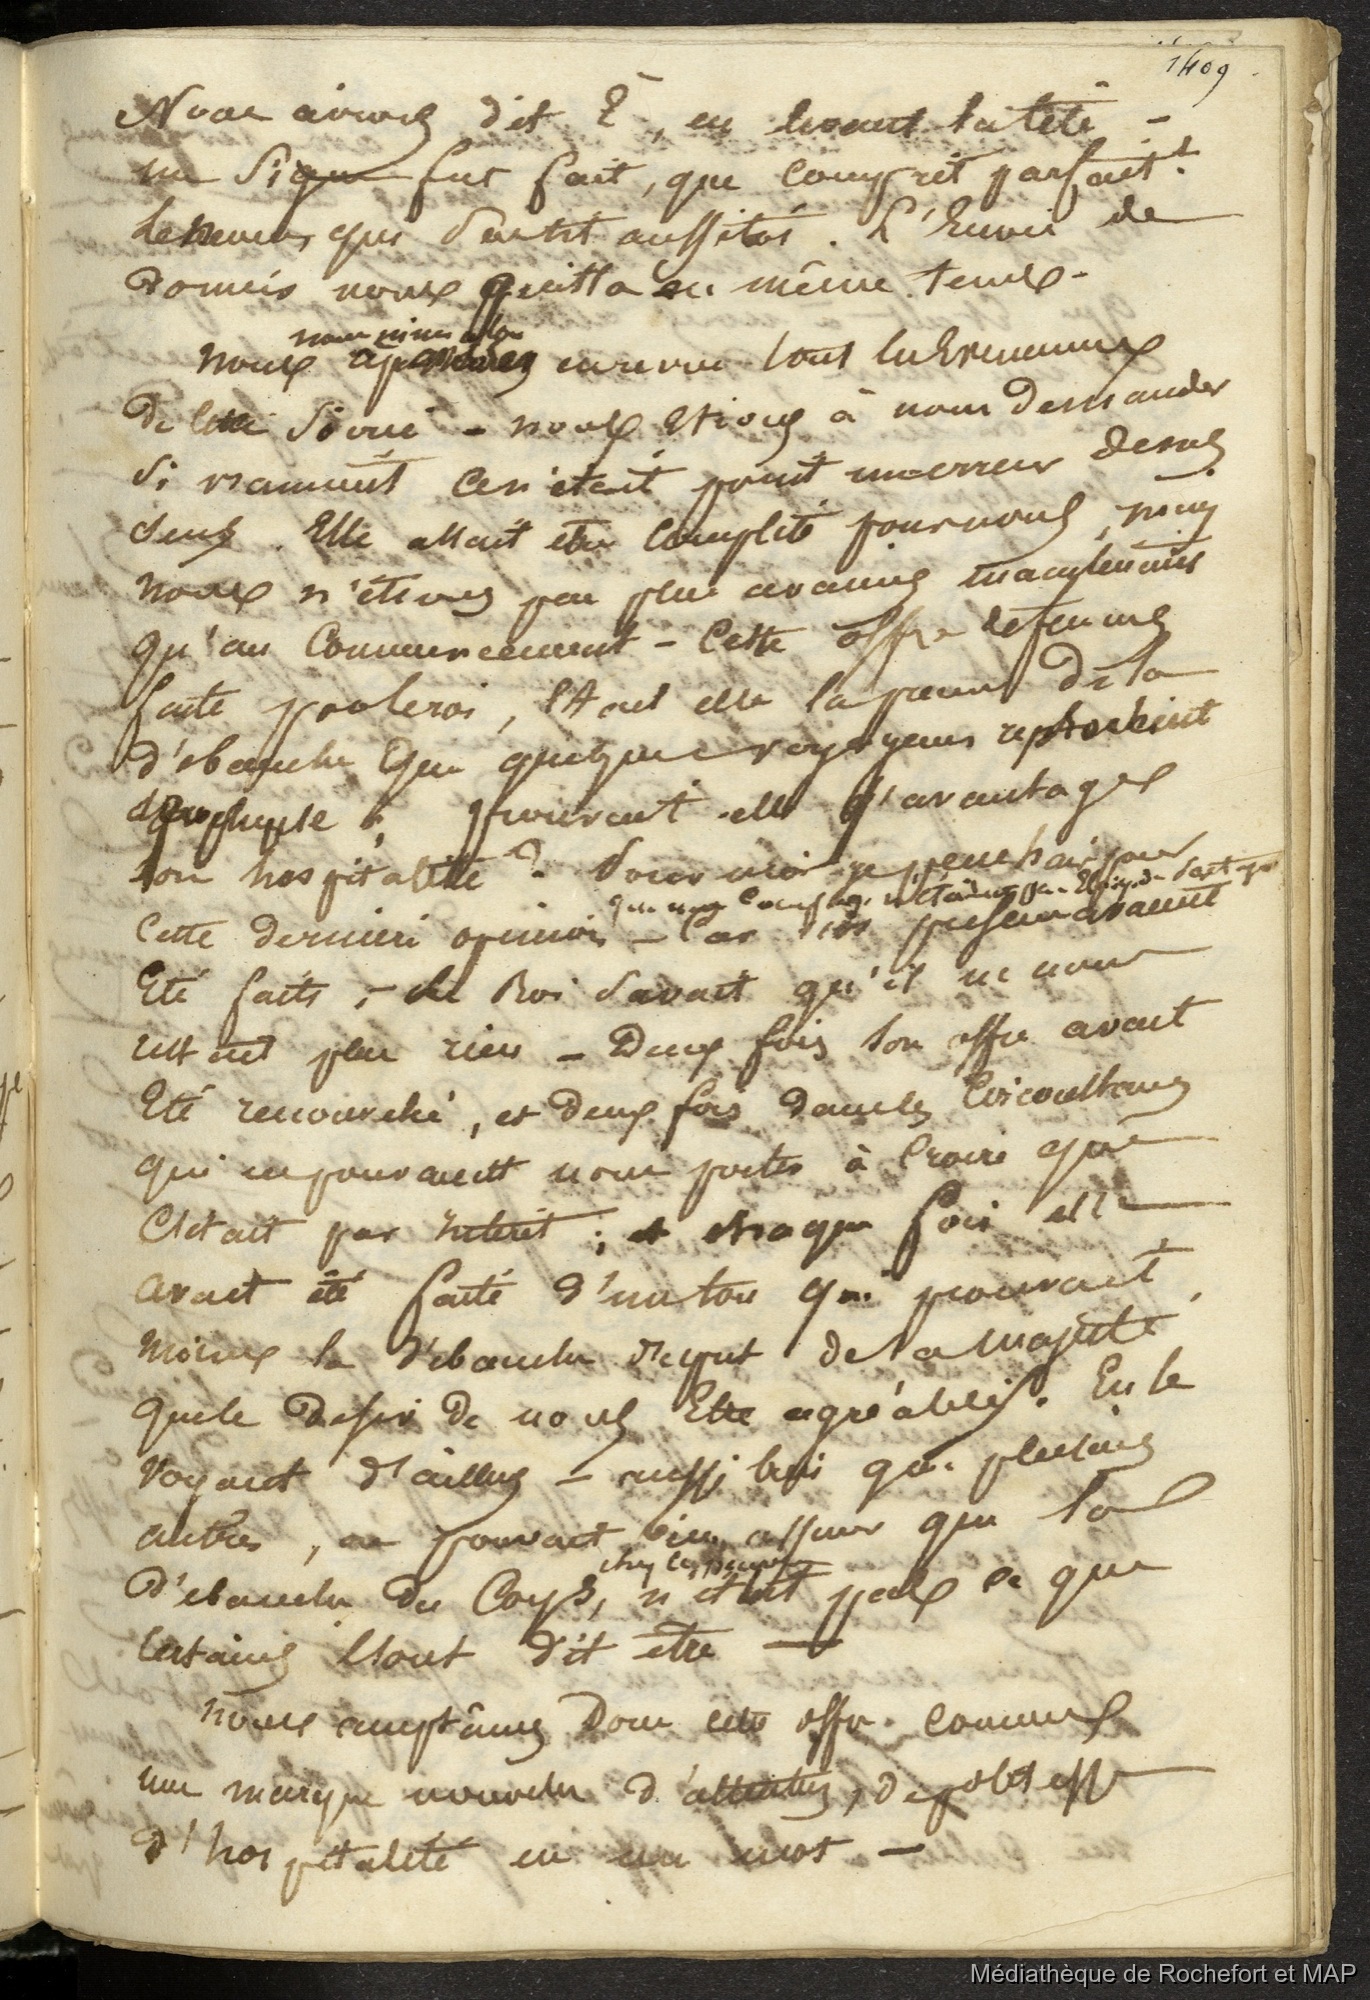 1409
Nous avions dit É, en levant la tête -
un signe fut fait, que comprit parfait.t
le neveu qui sortit aussitôt. L'envie de
dormir nous quitta en même temps -
nous mimes alors
nous en revue tous les évenemens
de cette soirée - nous étions à nous demander
si vraiment ce n'était point une erreur de nos
sens. Elle allait être complète pour nous,
nous n'étions pas plus avancés maintenant
qu'au commencement - Cette offre de femmes
faite par le roi, était elle la preuve de la
débauche que quelques voyageurs reprochent
à ce peuple ; prouvait-elle d'avantage
son hospitalité ? Pour moi je penchais pour
que nous n'étions pas
cette dernière opinion - Car nos présens avaient
été faits ; le Roi savait qu'il ne nous
restait plus rien - Deux fois son offre avait
été renouvelée, et deux fois dans les circonstances
qui ne pouvaient nous porter à croire que
c'était par intérêt ; et chaque fois elle
avait été faite d'un ton qui prouvait
moins la débauche d'esprit de sa majesté
que le désir de nous être agréable. En le
voyant d'ailleurs - aussi bien que plusieurs
autres, on pouvait bien assurer que la
chez les
débauche du corps, n'était pas ce que
certains l'ont dit être —
nous acceptâmes donc cette offre comme
une marque nouvelle d'attention, de politesse
d'hospitalité en un mot -
Médiathèque de Rochefort et MAP